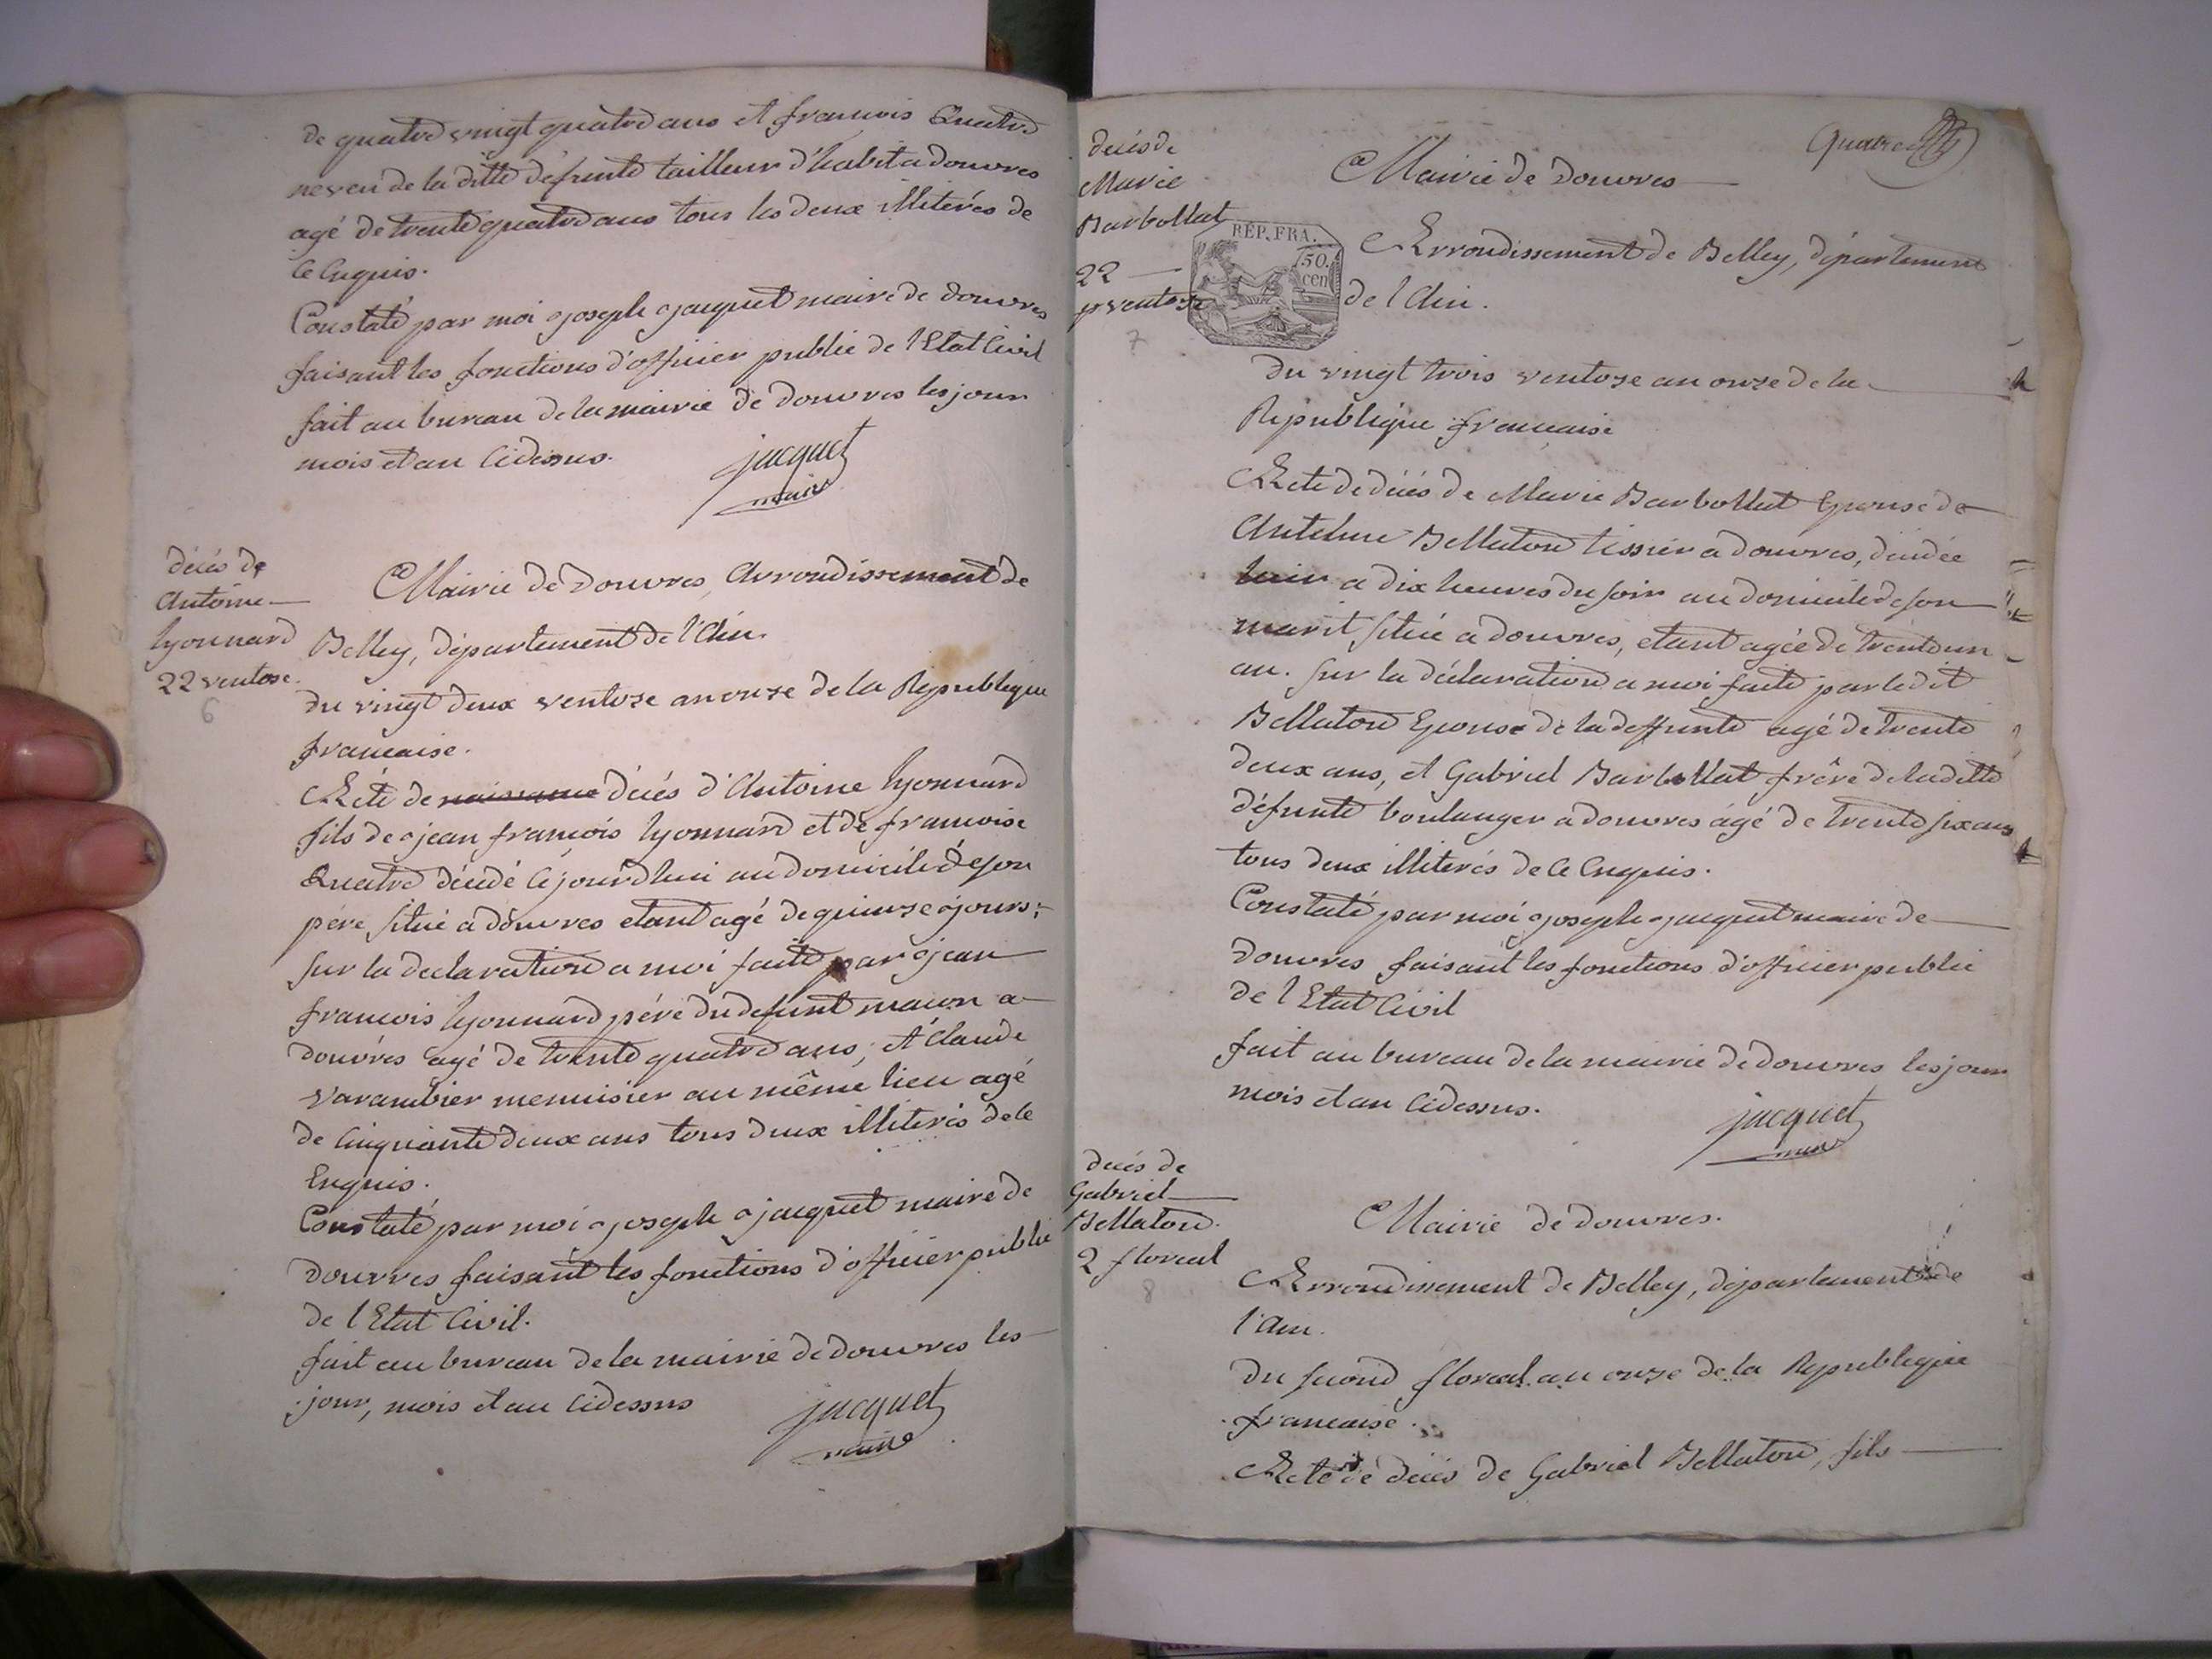 de quatre vingt quatre ans et francois Quatre
neveu de la ditte défunte tailleur d'habit a douvres
agé de trente quatre ans tous les deux illiterés de
ce Enquis.
Constaté par moi joseph jacquet maire de douvres
faisant les fonctions d'officier public de l'Etat Civil
fait au bureau de la mairie de douvres les jour
mois et an Cidessus.
jacquet
maire
décés de
Antoine
lyonnard
22 ventose.
6
Mairie de Douvres, Arrondissement de
Belley, département de l'Ain.
du vingt deux ventose an onze de la Republique
francaise.
Acte de naissance décés d'Antoine lyonnard
fils de jean francois lyonnard et de francoise
Quatre décédé cejourdhui au domicile de son
pére situé a douvres etant agé de quinze jours;
sur la declaration a moi faite par jean
francois lyonnard pére du defunt macon a
douvres agé de trente quatre ans; et Claude
varambier menuisier au même lieu agé
de Cinquante deux ans tous deux illiterés de ce
Enquis.
Constaté par moi joseph jacquet maire de
douvres faisant les fonctions d'officier public
de l'Etat Civil.
fait au bureau de la mairie de douvres les
jour, mois et an Cidessus
jacquet
maire
Quatre
decés de
Marie
Barbollat
22
ventose
7
RÉP. FRA.
50.
cen
Mairie de Douvres
Arrondissement de Belley, département
de l'Ain.
du vingt trois ventose an onze de la
Republique francaise
Acte de décés de Marie Barbollat Epouse de
Antelme Bellaton tissier a douvres, décédée
hier a dix heures du soir au domicile de son
marit situé a douvres, etant agée de trente un
an. sur la déclaration a moi faite par ledit
Bellaton Epouse de la deffunte agé de trente
deux ans, et Gabriel Barbollat frêre de la ditte
défunte boulanger a douvres agé de trente six ans
tous deux illiterés de ce Enquis.
Constaté par moi joseph jacquet maire de
douvres faisant les fonctions d'officier public
de l'Etat Civil
fait au bureau de la mairie de douvres les jour
mois et an Cidessus.
jacquet
maire
decés de
Gabriel
Bellaton.
2 floreal
8
Mairie de douvres.
Arrondissement de Belley, département de
l'Ain.
du second floreal an onze de la Republique
francaise.
Acte de decés de Gabriel Bellaton, fils